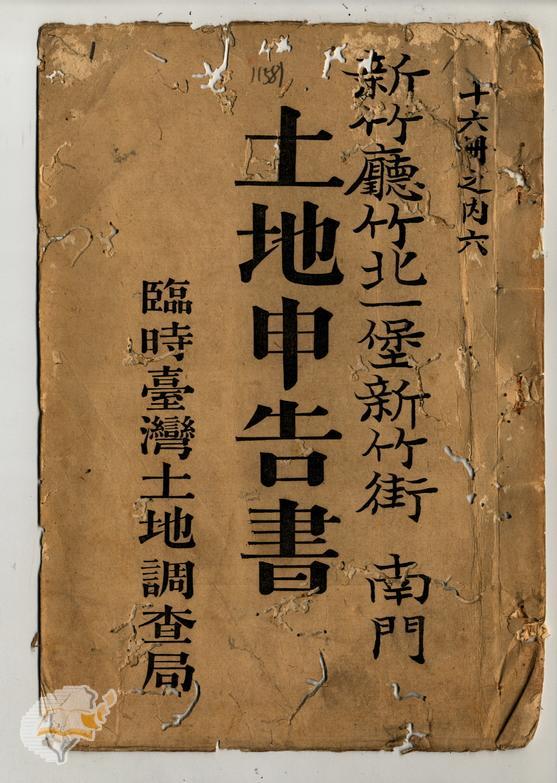 十六冊之内六
新竹廳竹北一堡新竹街 南門
土地申告書
臨時臺灣土地調查局
11581